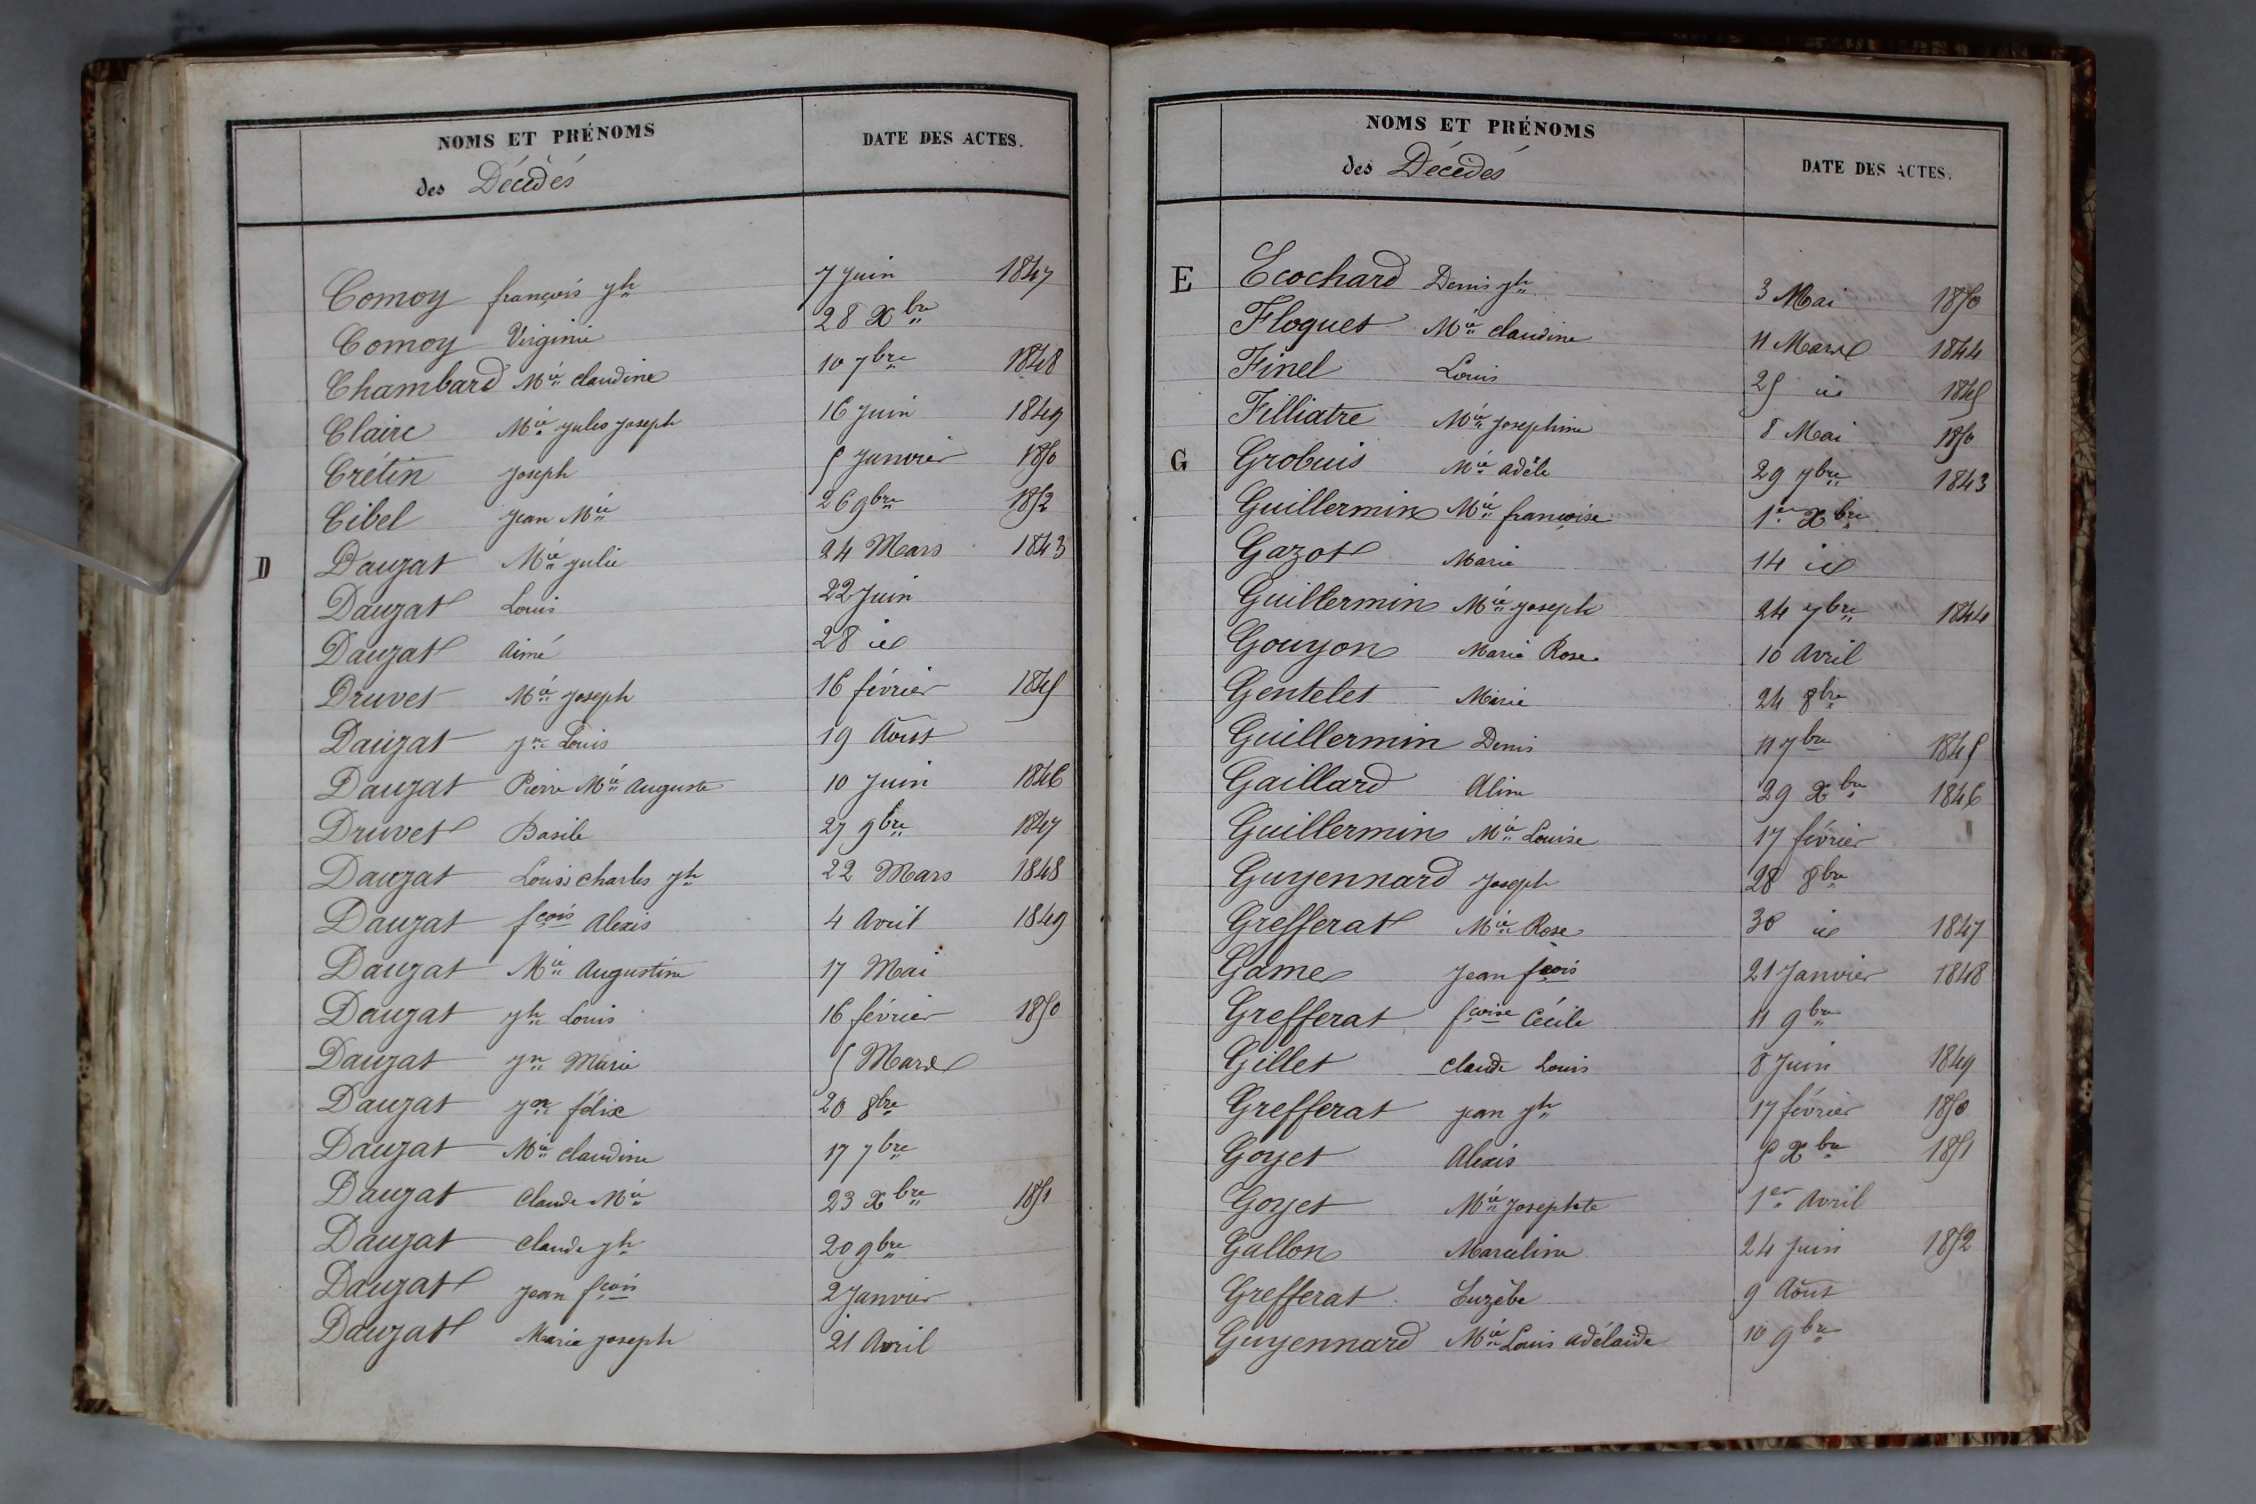 NOMS ET PRÉNOMS DATE DES ACTES.
des Décédés
Comoy françois jh 7 Juin 1847
Comoy Virginie 28 Xbre
Chambard Mie claudine 10 7bre 1848
Clairc Mie jules joseph 16 Juin 1849
Crétin joseph 5 Janvier 1850
Cibel jean Mie 26 9bre 1852
D Dauzat Mie julie 24 Mars 1843
Dauzat Louis 22 Juin
Dauzat Aimé 28 id
Druvet Mie joseph 16 février 1845
Dauzat jn Louis 19 Aout
Dauzat Pierre Mie Auguste 10 Juin 1846
Druvet Basile 27 9bre 1847
Dauzat Louis charles jh 22 Mars 1848
Dauzat fçois Alexis 4 Avril 1849
Dauzat Mie Augustine 17 Mai
Dauzat jh Louis 16 février 1850
Dauzat jn Marie 5 Mars
Dauzat jon félix 20 8bre
Dauzat Mie claudine 17 7bre
Dauzat Claude Mie 23 Xbre 1851
Dauzat claude jh 20 9bre
Dauzat jean fçois 2 Janvier
Dauzat Marie joseph 21 Avril
NOMS ET PRÉNOMS DATE DES ACTES.
des Décédés
E Ecochard Denis jh 3 Mai 1850
Floquet Mie claudine 11 Mars 1844
Finel Louis 25 id 1845
Filliatre Mie josephine 8 Mai 1850
G Grobuis Mie adèle 29 7bre 1843
Guillermin Mie françoise 1er Xbre
Gazot Marie 14 id
Guillermin Mie joseph 24 7bre 1844
Gouyon Marie Rose 10 Avril
Gentelet Marie 24 8bre
Guillermin Denis 11 7bre 1845
Gaillard Aline 29 Xbre 1846
Guillermin Mie Louise 17 février
Guyennard joseph 28 8bre
Grefferat Mie Rose 30 id 1847
Game jean fçois 21 Janvier 1848
Grefferat fçoise Cécile 11 9bre
Gillet claude Louis 8 Juin 1849
Grefferat jean jh 17 février 1850
Goyet Alexis 5 Xbre 1851
Goyet Mie josephte 1er Avril
Gallon Marceline 24 Juin 1852
Grefferat Euzèbe 9 Août
Guyennard Mie Louis adélaïde 10 9bre